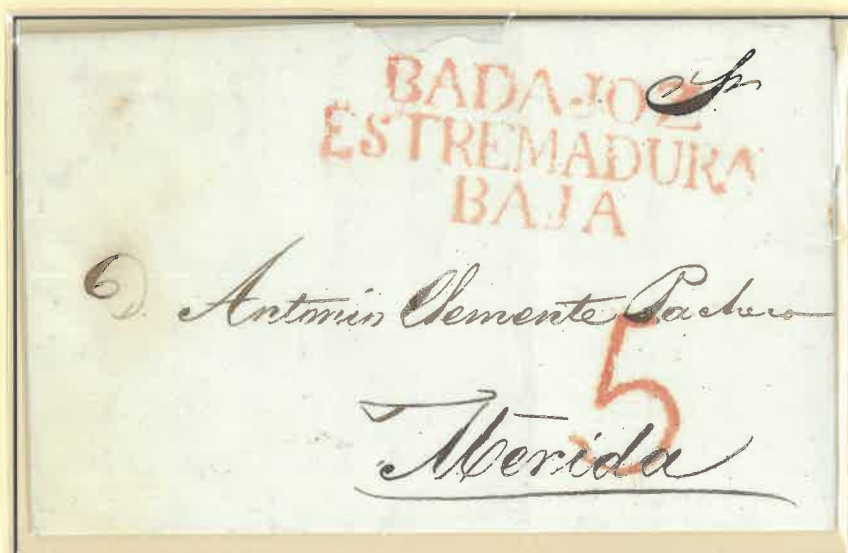 BADAJOZ
ESTREMADURA
BAJA
Sr
D. Antonio Clemente Pacheco
5
Mérida